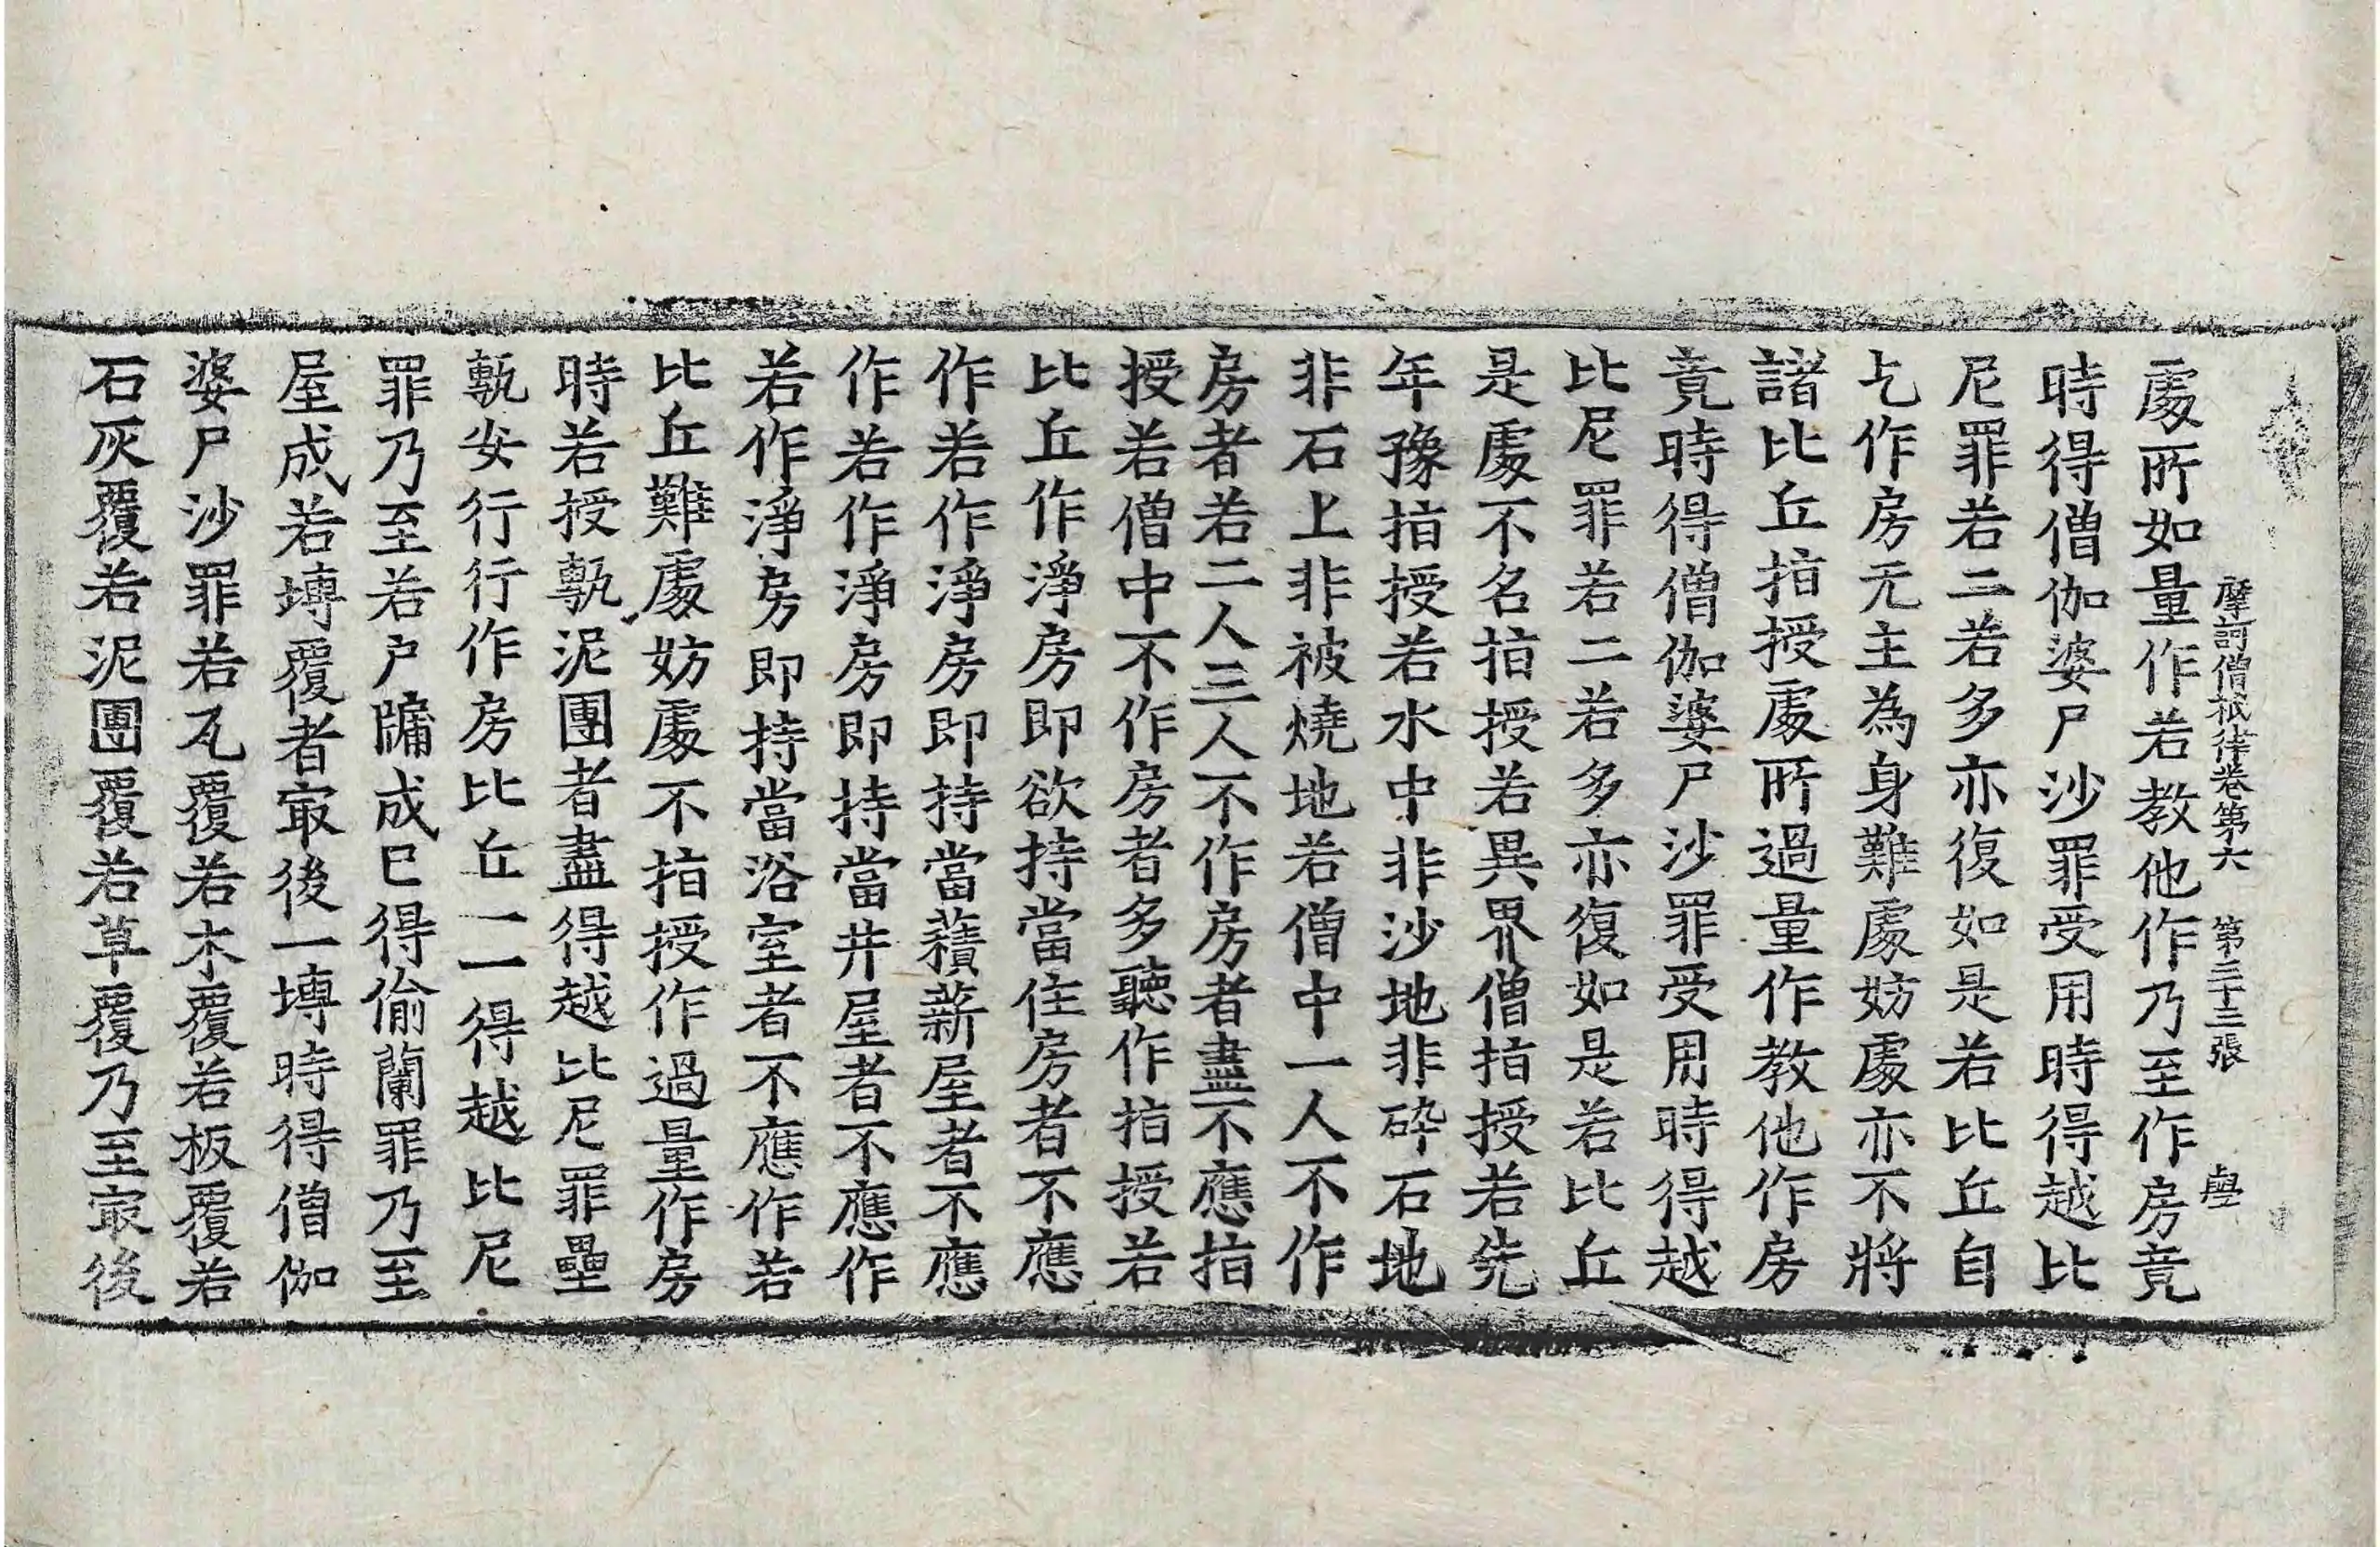 摩訶僧祇律卷第六 第三十三張
處所如量作若教他作乃至作房竟
時得僧伽婆尸沙罪受用時得越比
尼罪若二若多亦復如是若比丘自
乞作房无主為身難處妨處亦不將
諸比丘指授處所過量作教他作房
竟時得僧伽婆尸沙罪受用時得越
比尼罪若二若多亦復如是若比丘
是處不名指授若異界僧指授若先
年豫指授若水中非沙地非碎石地
非石上非被燒地若僧中一人不作
房者若二人三人不作房者盡不應指
授若僧中不作房者多聽作指授若
比丘作淨房即欲持當住房者不應
作若作淨房即持當薪屋者不應
作若作淨房即持當井屋者不應作
若作淨房即持當浴室者不應作若
比丘難處妨處不指授作過量作房
時若授墼泥團者盡得越比尼罪壘
墼安行行作房比丘一一得越比尼
罪乃至若戶牖成已得偷蘭罪乃至
屋成若塼覆者㝡後一塼時得僧伽
婆尸沙罪若瓦覆若木覆若板覆若
石灰覆若泥團覆若草覆乃至㝡後